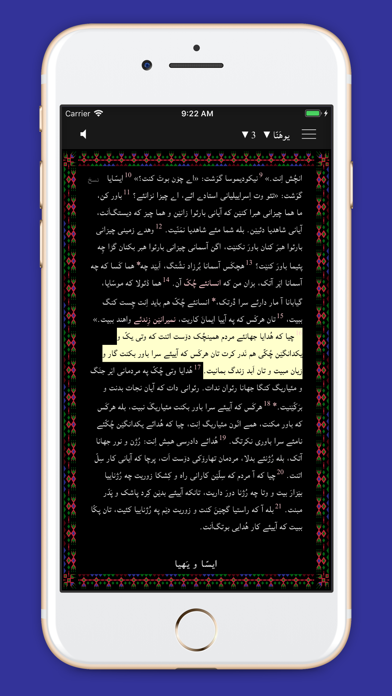 Carrier 9:22 AM
یوهنّا ▼ 3 ▼
انچُش اِنت.» 9 نیکودیموسا گوَشت: «اے چۆن بوتَ کنت؟» 10 ایسّایا پسّو
گوَشت: «تئو وت اِسراییلیانی استادے ائے، و اے چیزا نزانئے؟ 11 باور کن،
ما هما چیزانی هبرا کنێن که آیانی بارئوا زانێن و هما چیز که دیستگ‌اَنت،
آیانی شاهدیَ دئیێن. بله شما مئے شاهدیا نمَنّێت. 12 وهدے زمینی چیزانی
بارئوا هبرَ کنان باورَ نکنێت، اگن آسمانی چیزانی بارئوا هبر بکنان گڑا چه
پئیما باورَ کنێت؟ 13 هچکَس آسمانا بُرزاد نشُتگ، اَبێد چه* هما کَسا که چه
آسمانا اێر آتکگ، بزان من که انسانئے چُکّ آن. 14 هما دَئولا که موسّایا،
گیابانا آ مار دارئے سرا دْرتک،* انسانئے چُکّ هم باید اِنت چست کنگ
ببیت، 15 تان هرکَس که په آییا ایمان کاریت، نمیرانێن زندئے واهند ببیت.»
چیا که هُدایا جهانئے مردم همینچُک دۆست اتنت که وتی یکّ و
یکدانگێن چُکّی هم ندر کرت تان هرکَس که آییئے سرا باور بکنت گار و
زیان مبیت و تان اَبد زندگ بمانیت. 17 هُدایا وتی چُکّ په مردمانی اێر جنگ
و مئیاریگ کنگا جهانا رئوان ندات. رئوانی دات که آیان نجات بدنت و
برَکّێنیت.* 18 هرکَس که آییئے سرا باور بکنت مئیاریگَ نبیت، بله هرکَس
که باور مکنت، همے انّون مئیاریگ اِنت، چیا که هُدائے یکدانگێن چُکّئے
نامئے سرا باوری نکرتگ. 19 هُدائے دادرسی همێش اِنت: رُژن و نور جهانا
آتک، بله رُژنئے بدلا، مردمان تهارۆکی دۆست اَت، پرچا که آیانی کار سِلّ
اتنت. 20 چیا که آ مردم که سِلّێن کارانی راه و کِشکا زوریت چه رُژناییا
بێزار بیت و وتا چه رُژنا دورَ داریت، تانکه آییئے بدێن کِرد پاشک و پَدّر
مبنت. 21 بله آ که راستیا گچێنَ کنت و زوریت دێم په رُژناییا کئیت، تان پکّا
ببیت که آییئے کار هُدایی بوتگ‌اَنت.
ایسّا و یَهیا